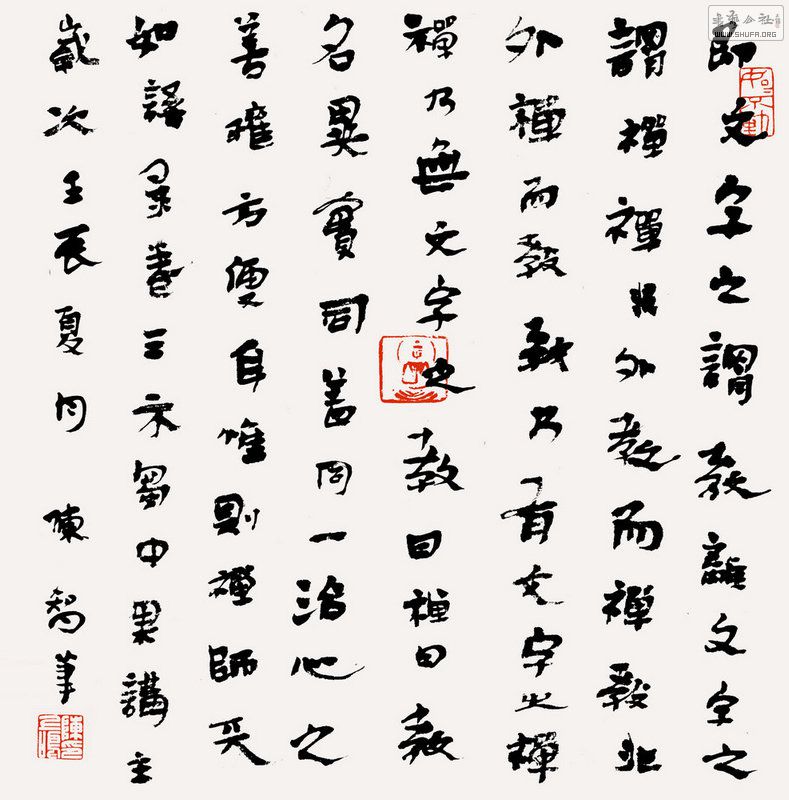 即文字之謂教離文字之
謂禪禪非外教而禪教非
外禪而教教乃有文字之禪
禪乃無文字之教曰禪曰教
名異實同蓋同一治心之
善權方便耳惟則禪師天
如語錄卷三示芻中果講主
歲次壬辰夏月 陳智筆
WWW.SHUFA.ORG